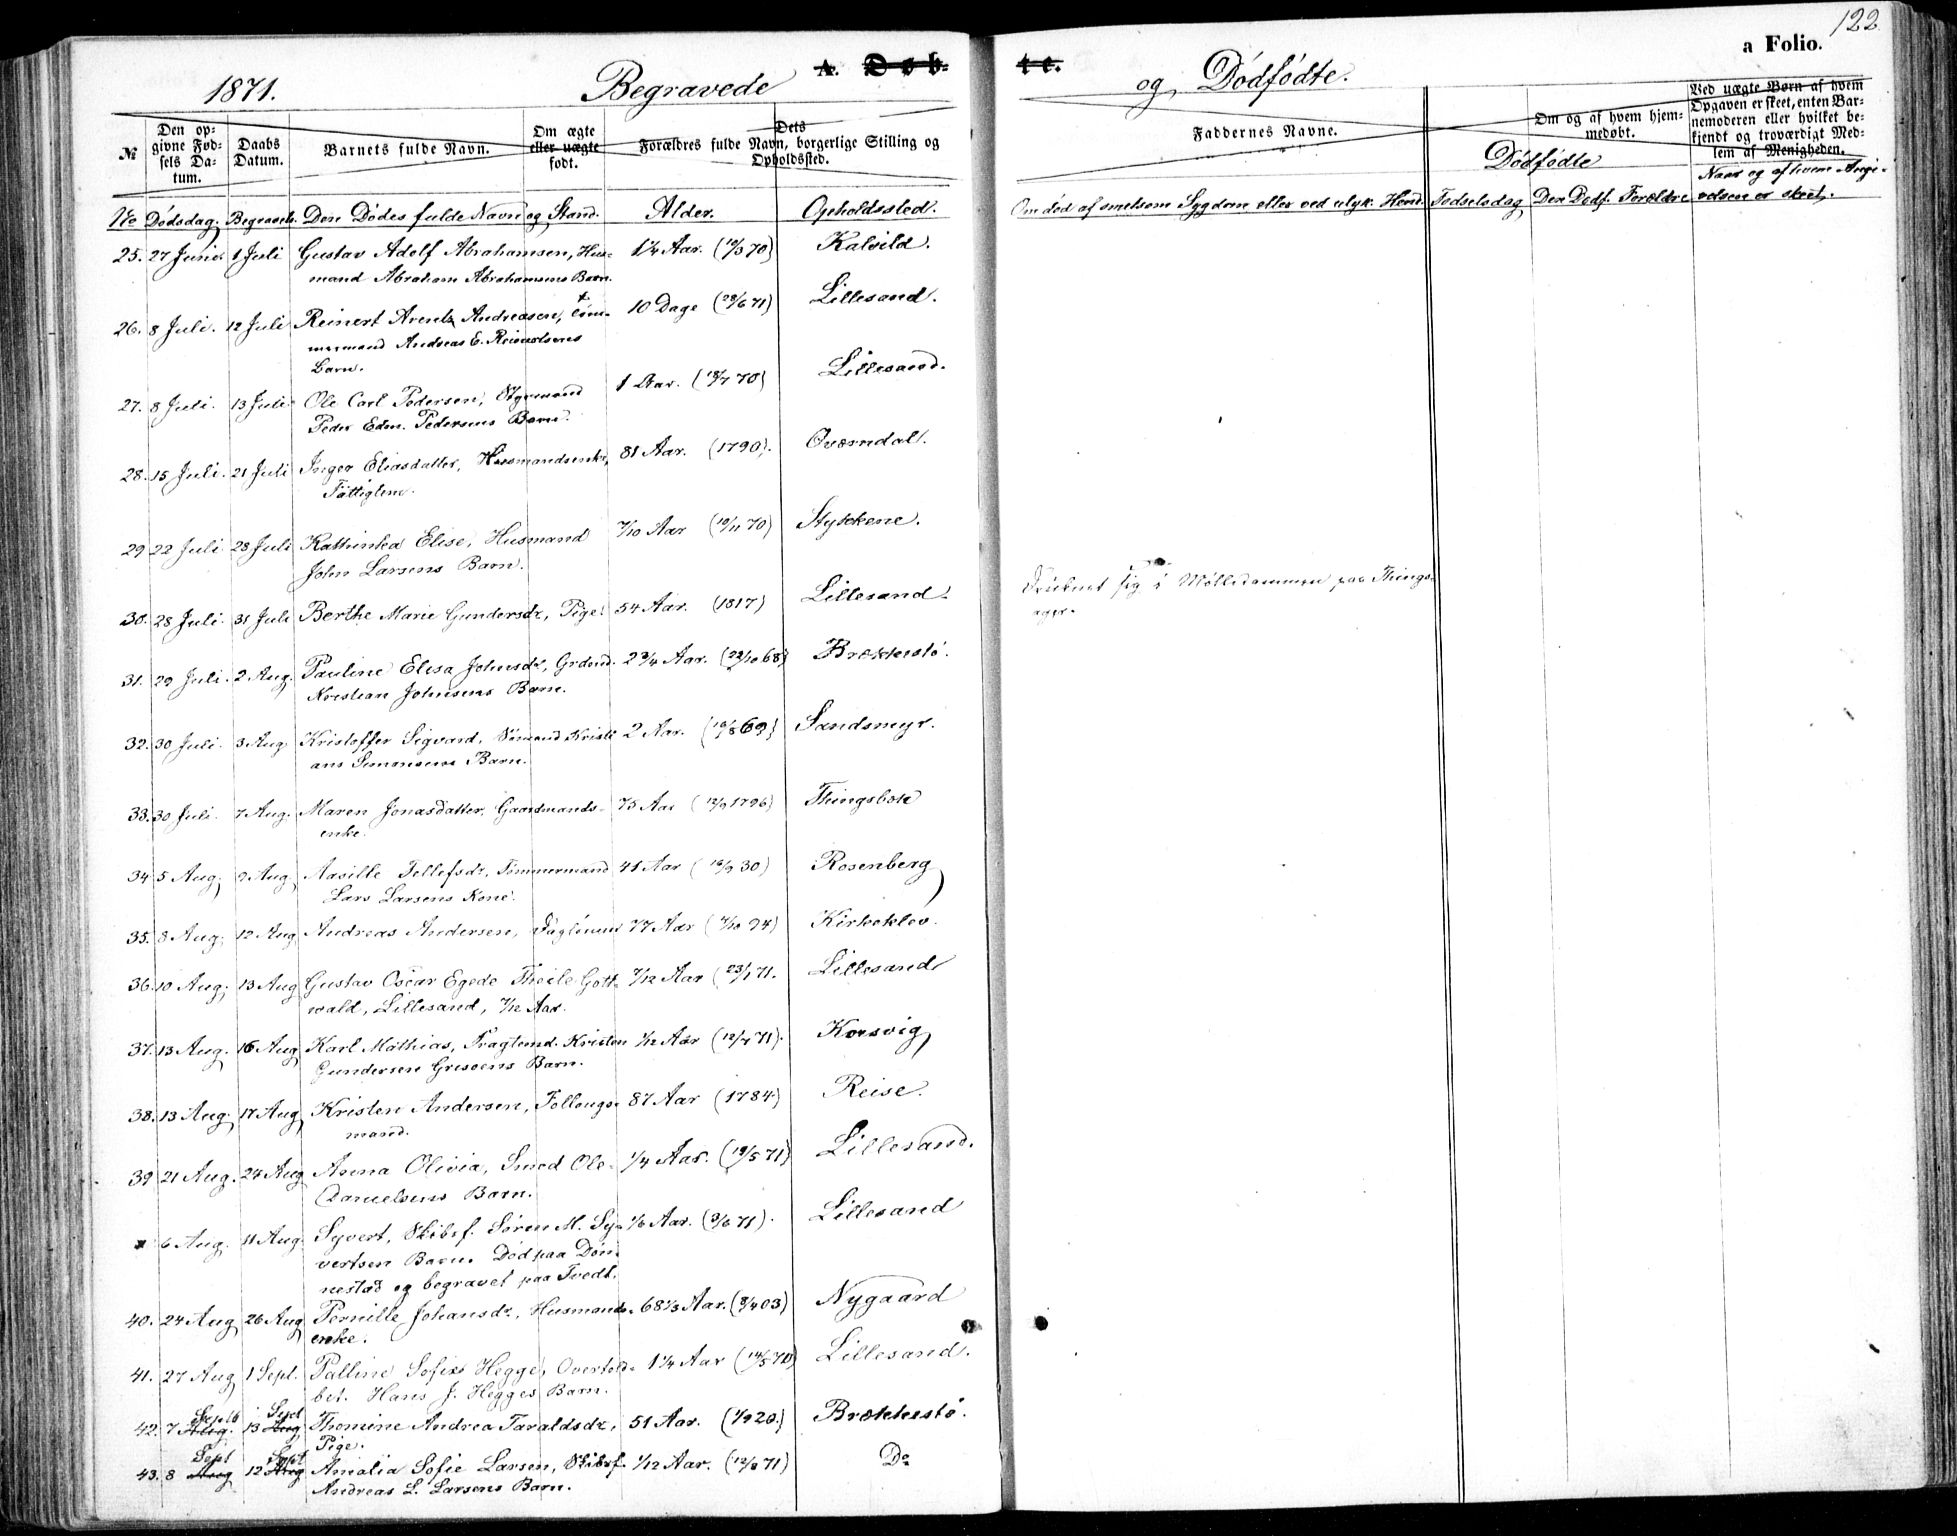 122
a Folio.
1871. Begravede A. Døb-
te. og Dødfødte.
№
Den op-
givne Fød-
sels Da-
tum.
Daabs
Datum.
Barnets fulde Navn.
Om ægte
eller uægte
født.
Dets
Forældres fulde Navn, borgerlige Stilling og
Opholdssted.
Faddernes Navne.
Om og af hvem hjem-
medøbt.
Ved uægte Børn af hvem
Opgaven er skeet, enten Bar-
nemoderen eller hvilket be-
kjendt og troværdigt Med-
lem af Menigheden.
Dødfødte
No Dødsdag. Begravels. Den Dødes fulde Navn og Stand. Alder. Opholdssted. Om død af smitsom Sygdom eller ved ulyk. Hend. Fødselsdag Den Dødf. Forældre Naar og af hvem Angi-
velsen er skeet.
25. 27 Juni. 1 Juli Gustav Adolf Abrahamsen, Hus- 1¼ Aar. (19/3 70) Kalvild.
mand Abraham Abrahamsens Barn.
26. 8 Juli. 12 Juli Reinert Arentz Andreasen, Tøm- 10 Dage (28/6 71) Lillesand.
mermand Andreas E. Reinertsens
Barn.
27. 8 Juli. 13 Juli Ole Carl Pedersen, Styrmand 1 Aar. (18/7 70) Lillesand.
Peder Edm. Pedersens Barn.
28. 15 Juli. 21 Juli Inger Eliasdatter, Husmandsenke, 81 Aar. (1790). Qværndal.
Fattiglem.
29 22 Juli 28 Juli Kathinka Elise, Husmand 7/10 Aar (19/11 70) Stykkene.
John Larsens Barn.
30. 28 Juli. 31 Juli Berthe Marie Gundersdr, Pige. 54 Aar. (1817) Lillesand. Druknet sig i Mølledammen paa Things-
ager.
31. 29 Juli. 2 Aug. Pauline Elisa Johnsdr, Grdmd. 2¾ Aar. (22/10 68) Brækkestø.
Kristian Johnsens Barn.
32. 30 Juli. 3 Aug Kristoffer Sigvard, Sømand Kristi- 2 Aar. (10/8 69) Sandsmyr.
ans Simonsens Barn.
33. 30 Juli. 7 Aug. Maren Jonasdatter, Gaardmands- 75 Aar (12/9 1796) Thingsbok
enke.
34 5 Aug. 9 Aug Aasille Tellefsdr, Tømmermand 41 Aar (18/9 30) Rosenberg
Lars Larsens Kone.
35. 8 Aug. 12 Aug Andreas Andersen, Daglønner 77 Aar (7/10 94) Kirkeklev.
36. 10 Aug. 13 Aug Gustav Oscar Egede Theile Gott- 7/12 Aar (23/1 71. Lillesand
wald, Lillesand, 7/12 Aar.
37. 13 Aug. 16 Aug Karl Mathias, Fragtemd. Kristen 1/12 Aar (12/7 71). Korsvig
Gundersen Grisøens Barn.
38. 13 Aug. 17 Aug Kristen Andersen, Follaugs- 87 Aar (1784) Reise.
mand.
39 21 Aug. 24 Aug Anna Olivia, Smed Ole 1/4 Aar. (19/5 71) Lillesand.
Danielsens Barn.
x 6 Aug. 11 Aug. Syvert, Skibsf. Søren M. Sy- 1/6 Aar. (3/6 71). Lillesand
vertsen Barn. Død paa Døn-
nestad og begravet paa Tvedt.
40. 24 Aug 26 Aug Pernille Johansdr, Husmands- 68⅓ Aar. (8/4 03) Nygaard
enke.
41. 27 Aug 1 Sept. Palline Sofie Hegge, Overtold- 1¼ Aar (14/5 70) Lillesand.
bet. Hans J. Hegges Barn.
42. 7 Aug. Septb 13 Aug Sept Thomine Andrea Taraldsdr, 51 Aar. (1/9 20.) Brækkestø.
Pige.
43. 8 Aug Sept 12 Aug Sept Amalia Sofie Larsen, Skibsf. 1/12 Aar. (12/8 71) Do
Andreas L. Larsens Barn.